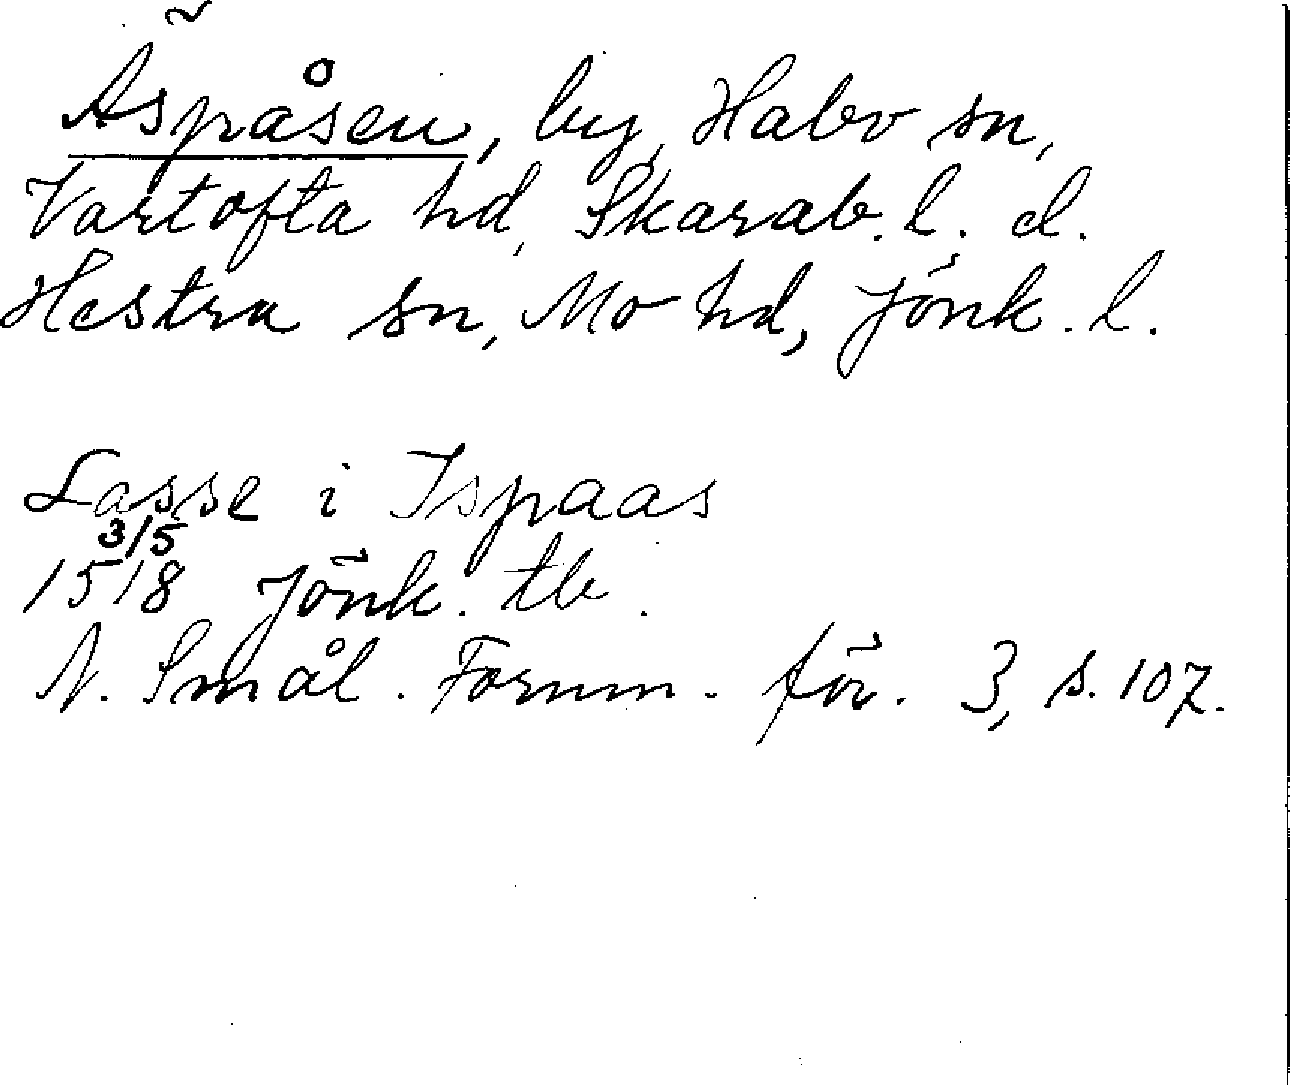 Äspåsen, by, Habo sn,
Vartofta hd, Skarab. l. el.
Hestra sn, Mo hd, Jönk. l.
Lasse i Ispaas
3/5
1518 Jönk. tb.
N. Smål. Fornm. för. 3, s. 107.